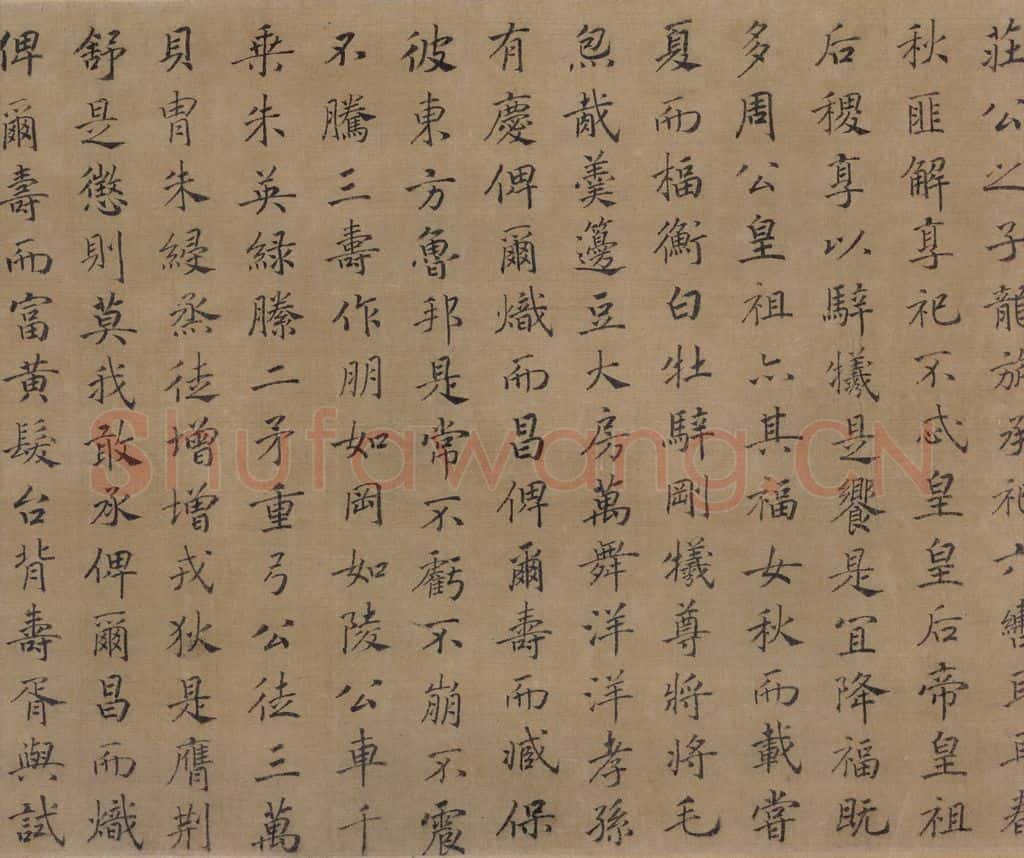 莊公之子龍旂承祀六轡耳耳春
秋匪解享祀不忒皇皇后帝皇祖
后稷享以騂犧是饗是宜降福既
多周公皇祖亦其福女秋而載嘗
夏而楅衡白牡騂剛犧尊將將毛
炰胾羹籩豆大房萬舞洋洋孝孫
有慶俾爾熾而昌俾爾壽而臧保
彼東方魯邦是常不虧不崩不震
不騰三壽作朋如岡如陵公車千
乘朱英綠縢二矛重弓公徒三萬
貝冑朱綅烝徒增增戎狄是膺荊
舒是懲則莫我敢承俾爾昌而熾
俾爾壽而富黃髮台背壽胥與試
Shufawang.CN